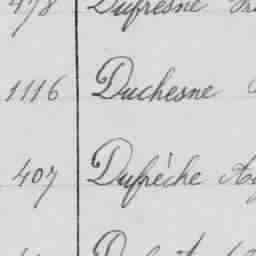 478 Dufresne
1116 Duchesne
407 Dufrèche